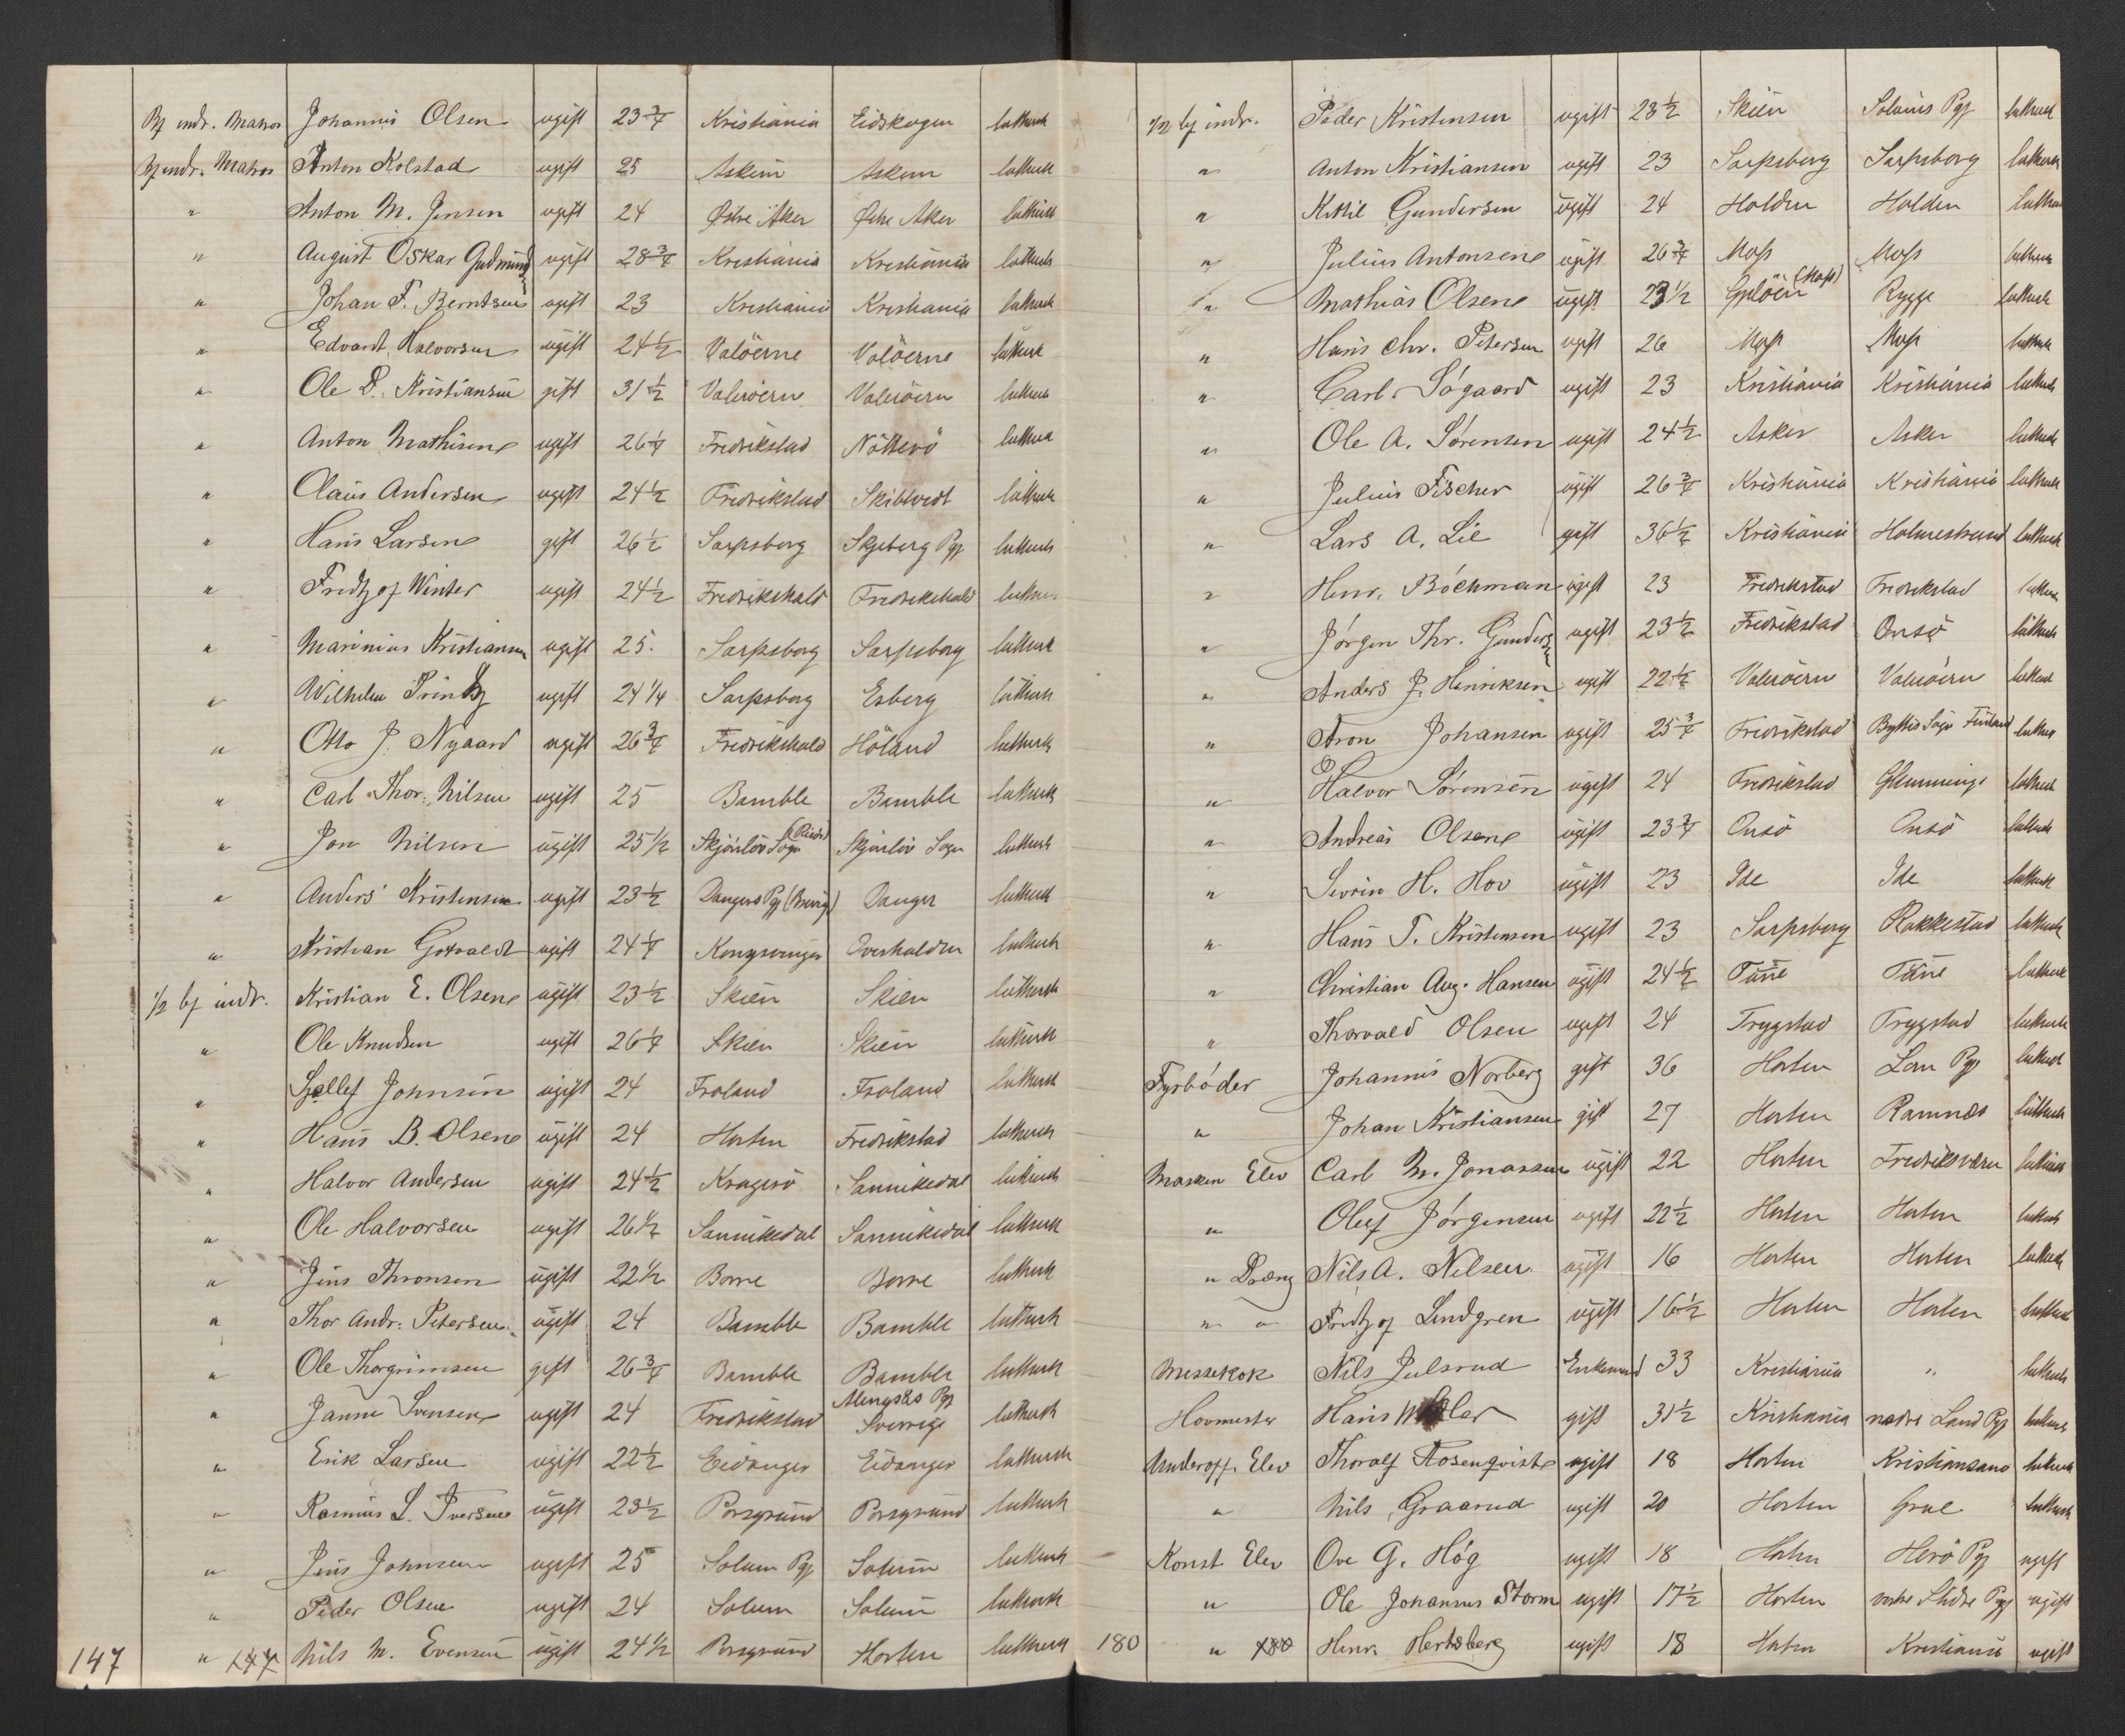 Bf indr. Matros Johannis Olsen ugift 23 3/4 Kristiania Eidskogen luthersk
Bf indr. Matros Anton Kolstad ugift 25 Askim Askim luthersk
" Anton M. Jensen ugift 24 Østre Aker Østre Aker luthersk
" August Oskar Gudmunds ugift 28 3/4 Kristiania Kristiania luthersk
" Johan F. Berntsen ugift 23 Kristiania Kristiania luthersk
" Edvardt Halvorsen ugift 24 1/2 Valöerne Valöerne luthersk
" Ole D. Kristiansen gift 31 1/2 Valeröern Valeröern luthersk
" Anton Mathisen ugift 26 1/4 Fredrikstad Nötterö luthersk
" Claus Andersen ugift 24 1/2 Fredrikstad Skibtvedt luthersk
" Hans Larsen gift 26 1/2 Sarpsborg Skjeberg Pgj luthersk
" Fridtzof Winter ugift 24 1/2 Fredrikshald Fredrikshald luthersk
" Marinius Kristiansen ugift 25. Sarpsborg Sarpsborg luthersk
" Wilhelm Printz ugift 24 1/4 Sarpsborg Esberg luthersk
" Otto J. Nygaard ugift 26 3/4 Fredrikshald Höland luthersk
" Carl Thor. Nilsen ugift 25 Bamble Bamble luthersk
" Jon Nilsen ugift 25 1/2 Skjönlöv Sogn Skjönlöv Sogn luthersk
" Anders Kristensen ugift 23 1/2 Dangers Pgj Danger luthersk
" Kristian Gotvaldt ugift 24 1/4 Kongsvinger Overhalden luthersk
1/2 bf indr. Kristian E. Olsen ugift 23 1/2 Skien Skien luthersk
" Ole Knudsen ugift 26 1/4 Skien Skien luthersk
" Johnsen ugift 24 Froland Froland luthersk
" Hans B. Olsen ugift 24 Horten Fredrikstad luthersk
" Halvor Andersen ugift 24 1/2 Kragerö Sannikedal luthersk
" Ole Halvorsen ugift 26 1/2 Sannikedal Sannikedal luthersk
" Jens Thronsen ugift 22 1/2 Borre Borre luthersk
" Thor Andr. Petersen ugift 24 Bamble Bamble luthersk
" Ole Thorgrimsen gift 26 3/4 Bamble Bamble luthersk
" Janne Svensen ugift 24 Fredrikstad Alingsås Pgj Sverrige luthersk
" Erik Larsen ugift 22 1/2 Eidanger Eidanger luthersk
" Rasmus L. Iversen ugift 23 1/2 Porsgrund Porsgrund luthersk
" Jens Johnsen ugift 25 Solum Pgj Solum luthersk
" Peder Olsen ugift 24 Solum Solum luthersk
147 " 147 Nils M. Evensen ugift 24 1/2 Porsgrund Horten luthersk
1/2 bf indr. Peder Kristensen ugift 23 1/2 Skien Solums Pgj luthersk
" Anton Kristiansen ugift 23 Sarpsborg Sarpsborg luthersk
" Kittil Gundersen ugift 24 Holden Holden luthersk
" Julius Antonsen ugift 26 3/4 Moss Moss luthersk
" Mathias Olsen ugift 23 1/2 Gjelöen (Moss) Rygge luthersk
" Hans Chr. Petersen ugift 26 Moss Moss luthersk
" Carl Sögaard ugift 23 Kristiania Kristiania luthersk
" Ole A. Sörensen ugift 24 1/2 Asker Asker luthersk
" Julius Fischer ugift 26 3/4 Kristiania Kristiania luthersk
" Lars A. Lie gift 36 1/2 Kristiania Holmestrand luthersk
" Henr. Böchman ugift 23 Fredrikstad Fredrikstad luthersk
" Jörgen Thr. Gunders ugift 23 1/2 Fredrikstad Onsö luthersk
" Anders J. Henriksen ugift 22 1/2 Valeröern Valeröern luthersk
" Aron Johansen ugift 25 3/4 Fredrikstad Sogn Finland luthersk
" Halvor Sörensen ugift 24 Fredrikstad Glemminge luthersk
" Andreas Olsen ugift 23 3/4 Onsö Onsö luthersk
" Sevrin H. Hov ugift 23 Ide Ide luthersk
" Hans T. Kristensen ugift 23 Sarpsborg Rakkestad luthersk
" Christian Aug. Hansen ugift 24 1/2 Tune Tune luthersk
" Thorvald Olsen ugift 24 Trygstad Trygstad luthersk
Fyrböder Johannis Norberg gift 36 Horten Lom Pgj luthersk
" Johan Kristiansen gift 27 Horten Ramnæs luthersk
Maskin Elev Carl M. Jonassen ugift 22 Horten Fredriksværn luthersk
" Oluf Jörgensen ugift 22 1/2 Horten Horten luthersk
" Dreng Nils A. Nilsen ugift 16 Horten Horten luthersk
" " Fridtzof Lindgren ugift 16 1/2 Horten Horten luthersk
Messekok Nils Julsrud Enkemand 33 Kristiania " luthersk
Hovmester Hans gift 31 1/2 Kristiania nedre Land Pgj luthersk
Underoff. Elev Thoralf Rosenqvist ugift 18 Horten Kristiansand luthersk
" Nils Graarud ugift 20 Horten Grue luthersk
Konst Elev Ove G. Hög ugift 18 Horten Herö Pgj ugift
" Ole Johannes Storm ugift 17 1/2 Horten vestre Slidre Pgj ugift
180 " 180 Henr. Hertsberg ugift 18 Horten Kristiania ugift